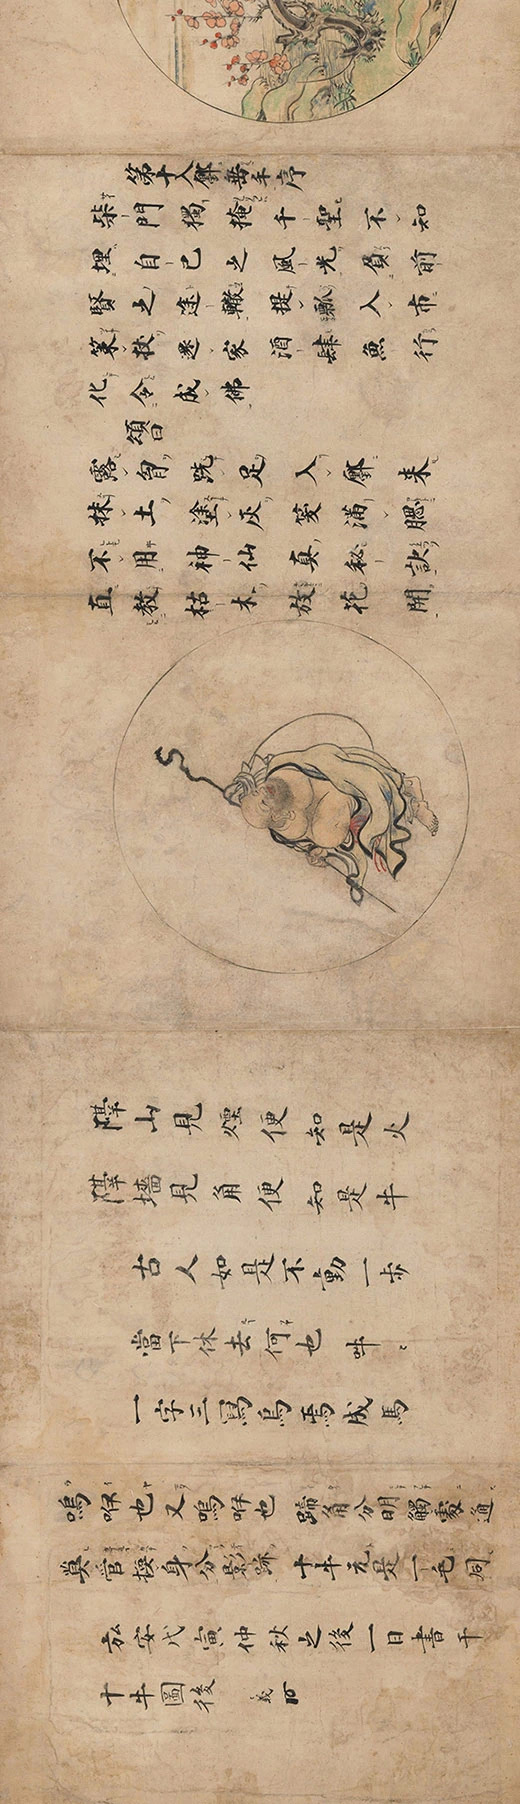 第十入鄽垂手序
柴門獨掩千聖不知
埋自己之風光負前
賢之途轍提瓢入市
策杖還家酒肆魚行
化令成佛
頌曰
露胷跣足入鄽来
抹土塗灰笑滿腮
不用神仙真秘訣
直教枯木放花開
隔山見煙便知是火
隔墻見角便知是牛
古人如是不動一歩
當下休去何也 咄
一字三寫烏焉成馬
嗚咿也又嗚咿也 蹄角分明觸處通
莫管身分影跡 十牛元是一毛同
弘安戊寅仲秋之後一日書于
十牛圖後